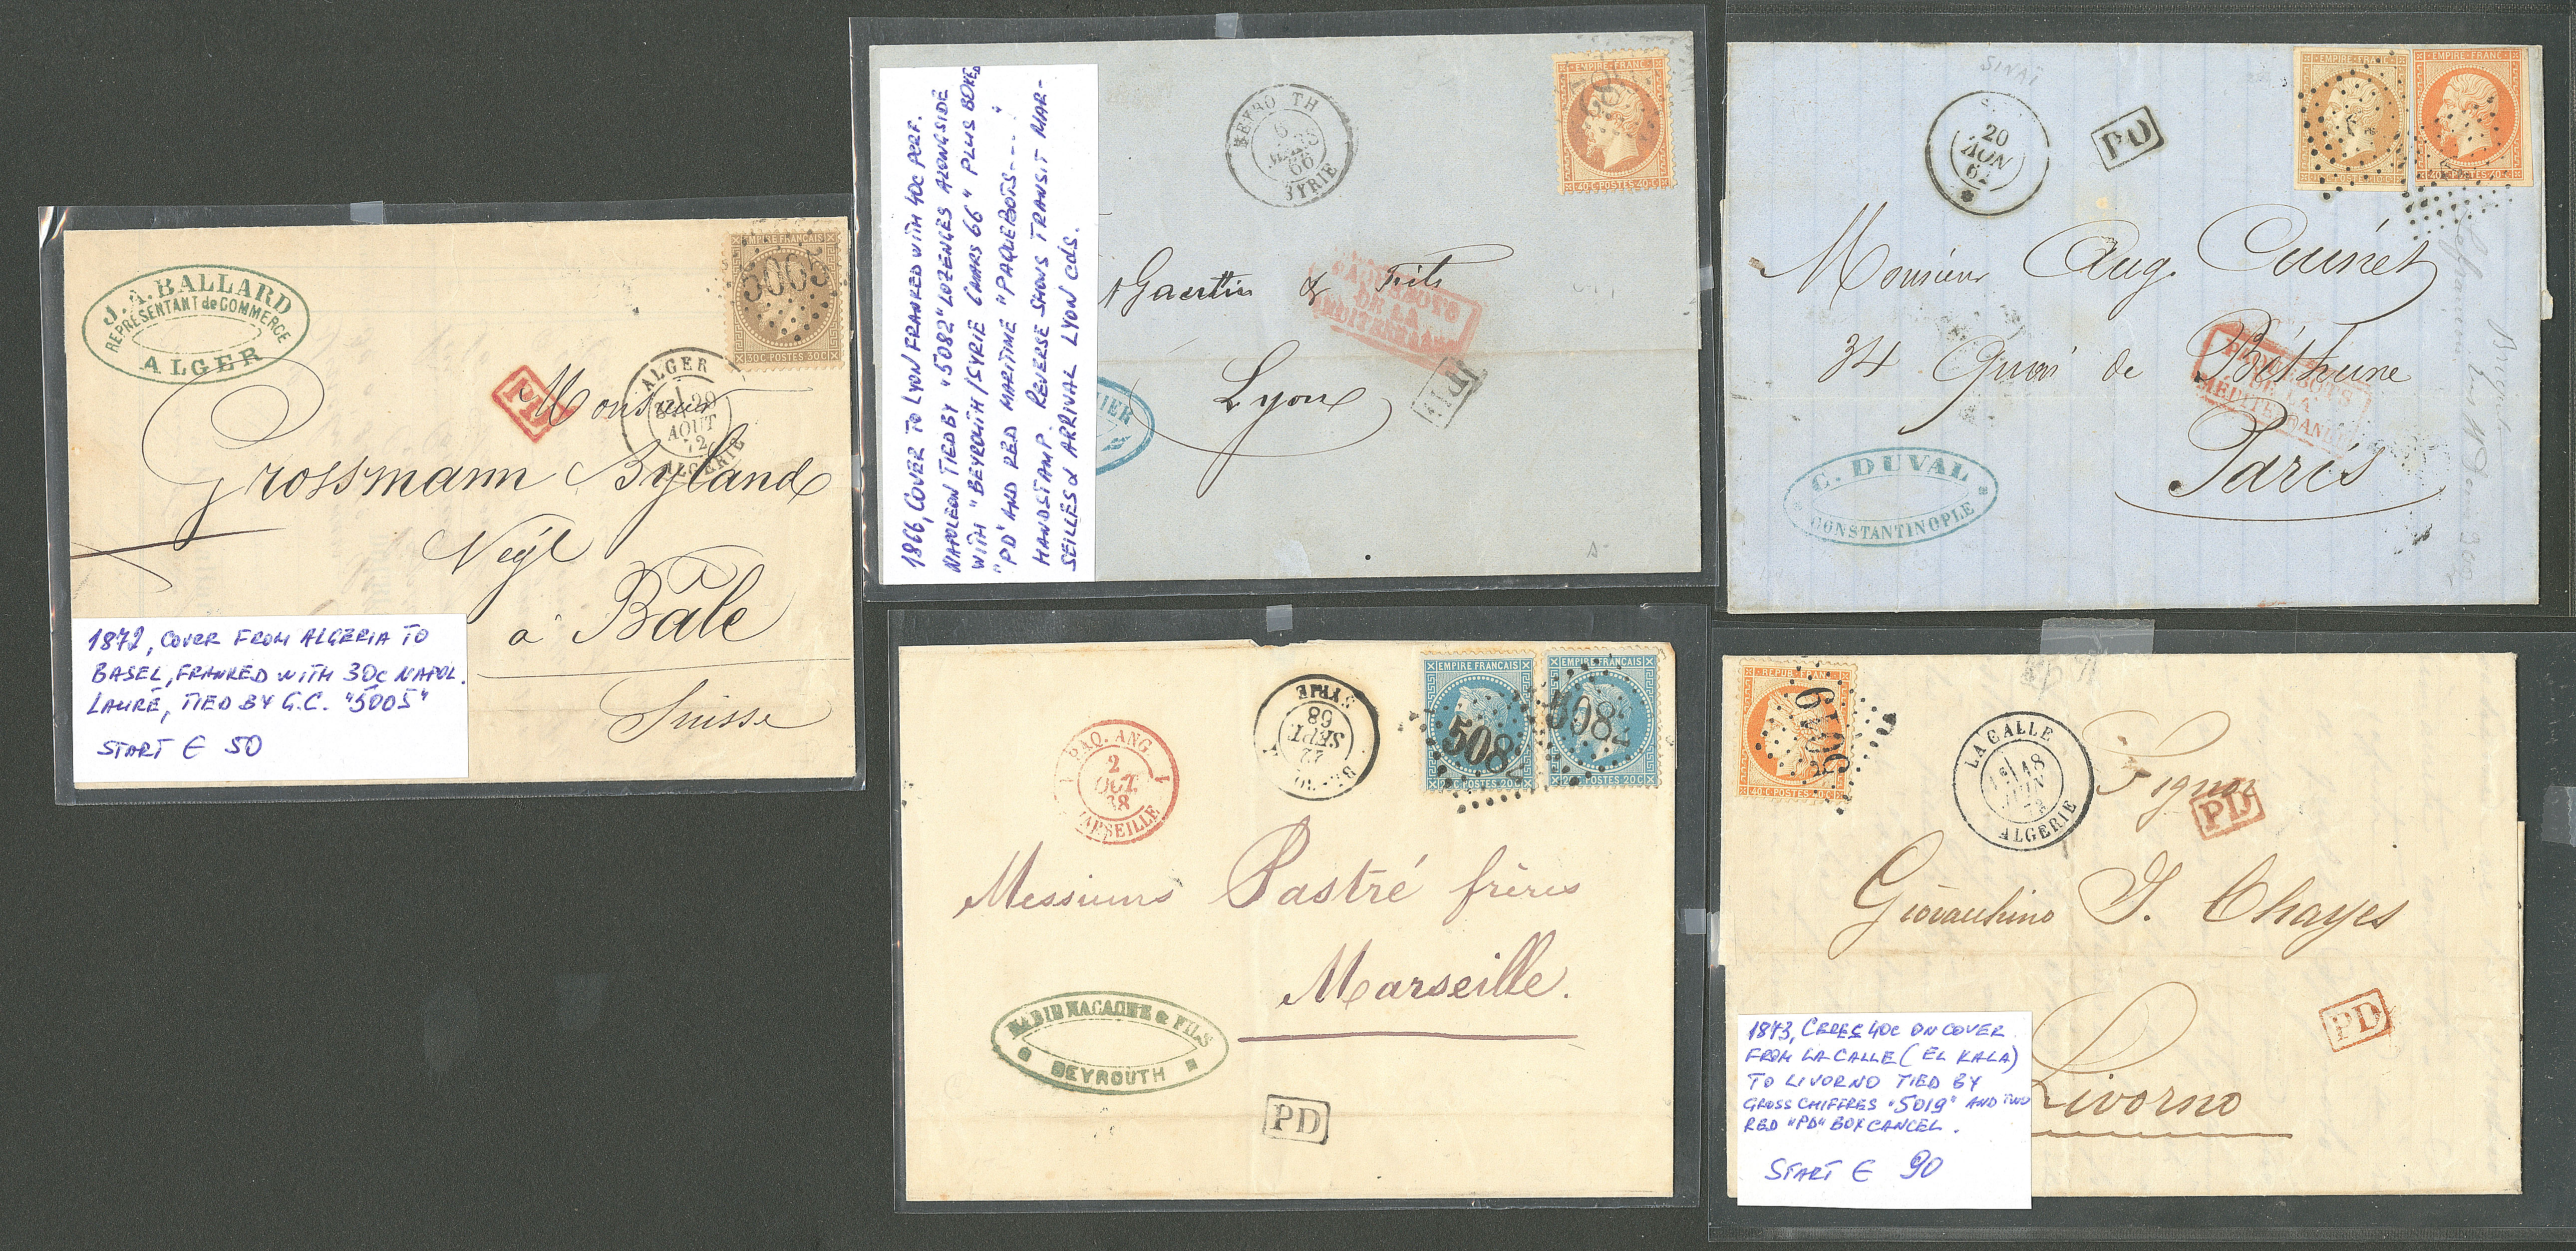 J. A. BALLARD
REPRÉSENTANT de COMMERCE
ALGER
EMPIRE FRANÇAIS
5005
30C POSTES 30C
PD
ALGER
29
AOUT
72
ALGERIE
Monsieur
Grossmann Byland
Negt
à Bâle
Suisse
1872, COVER FROM ALGERIA TO
BASEL, FRANKED WITH 30C NAPOL.
LAURÉ, TIED BY G.C. "5005"
START € 50
1866, COVER TO LYON FRANKED WITH 40C PERF.
NAPOLEON TIED BY "5082" LOZENGES ALONGSIDE
WITH "BEYROUTH/SYRIE 6 MARS 66" PLUS BOXED
"PD" AND RED MARITIME "PAQUEBOTS----"
HANDSTAMP. REVERSE SHOWS TRANSIT MAR-
SEILLES & ARRIVAL LYON cds.
BEYROUTH
6
MARS
66
SYRIE
EMPIRE FRANC
40C POSTES 40C
Gaertin & Fils
PAQUEBOTS
DE LA
MEDITERRANEE
Lyon
PD
SINAI
20
NOV
62
PD
EMPIRE FRANC
10C POSTES 10C
EMPIRE FRANC
40C POSTES 40C
Monsieur Aug. Cuinet
34 Quai de Béthune
Paris
PAQUEBOTS
DE LA
MÉDITERRANEE
C. DUVAL
CONSTANTINOPLE
PAQ. ANG
2
OCT.
68
MARSEILLE
22
SEPT
68
SYRIE
EMPIRE FRANÇAIS
5082
20C POSTES 20C
EMPIRE FRANÇAIS
5082
20C POSTES 20C
Messieurs Pastré frères
Marseille.
HABIB NACACHE & FILS
BEYROUTH
PD
REPUB. FRANC
5019
40C POSTES 40C
LA CALLE
18
JUIN
73
ALGERIE
Signor
PD
Giovacchino J. Chayes
PD
Livorno
1873, CERES 40C ON COVER
FROM LA CALLE (EL KALA)
TO LIVORNO TIED BY
GROSS CHIFFRES "5019" AND TWO
RED "PD" BOX CANCEL.
START € 90